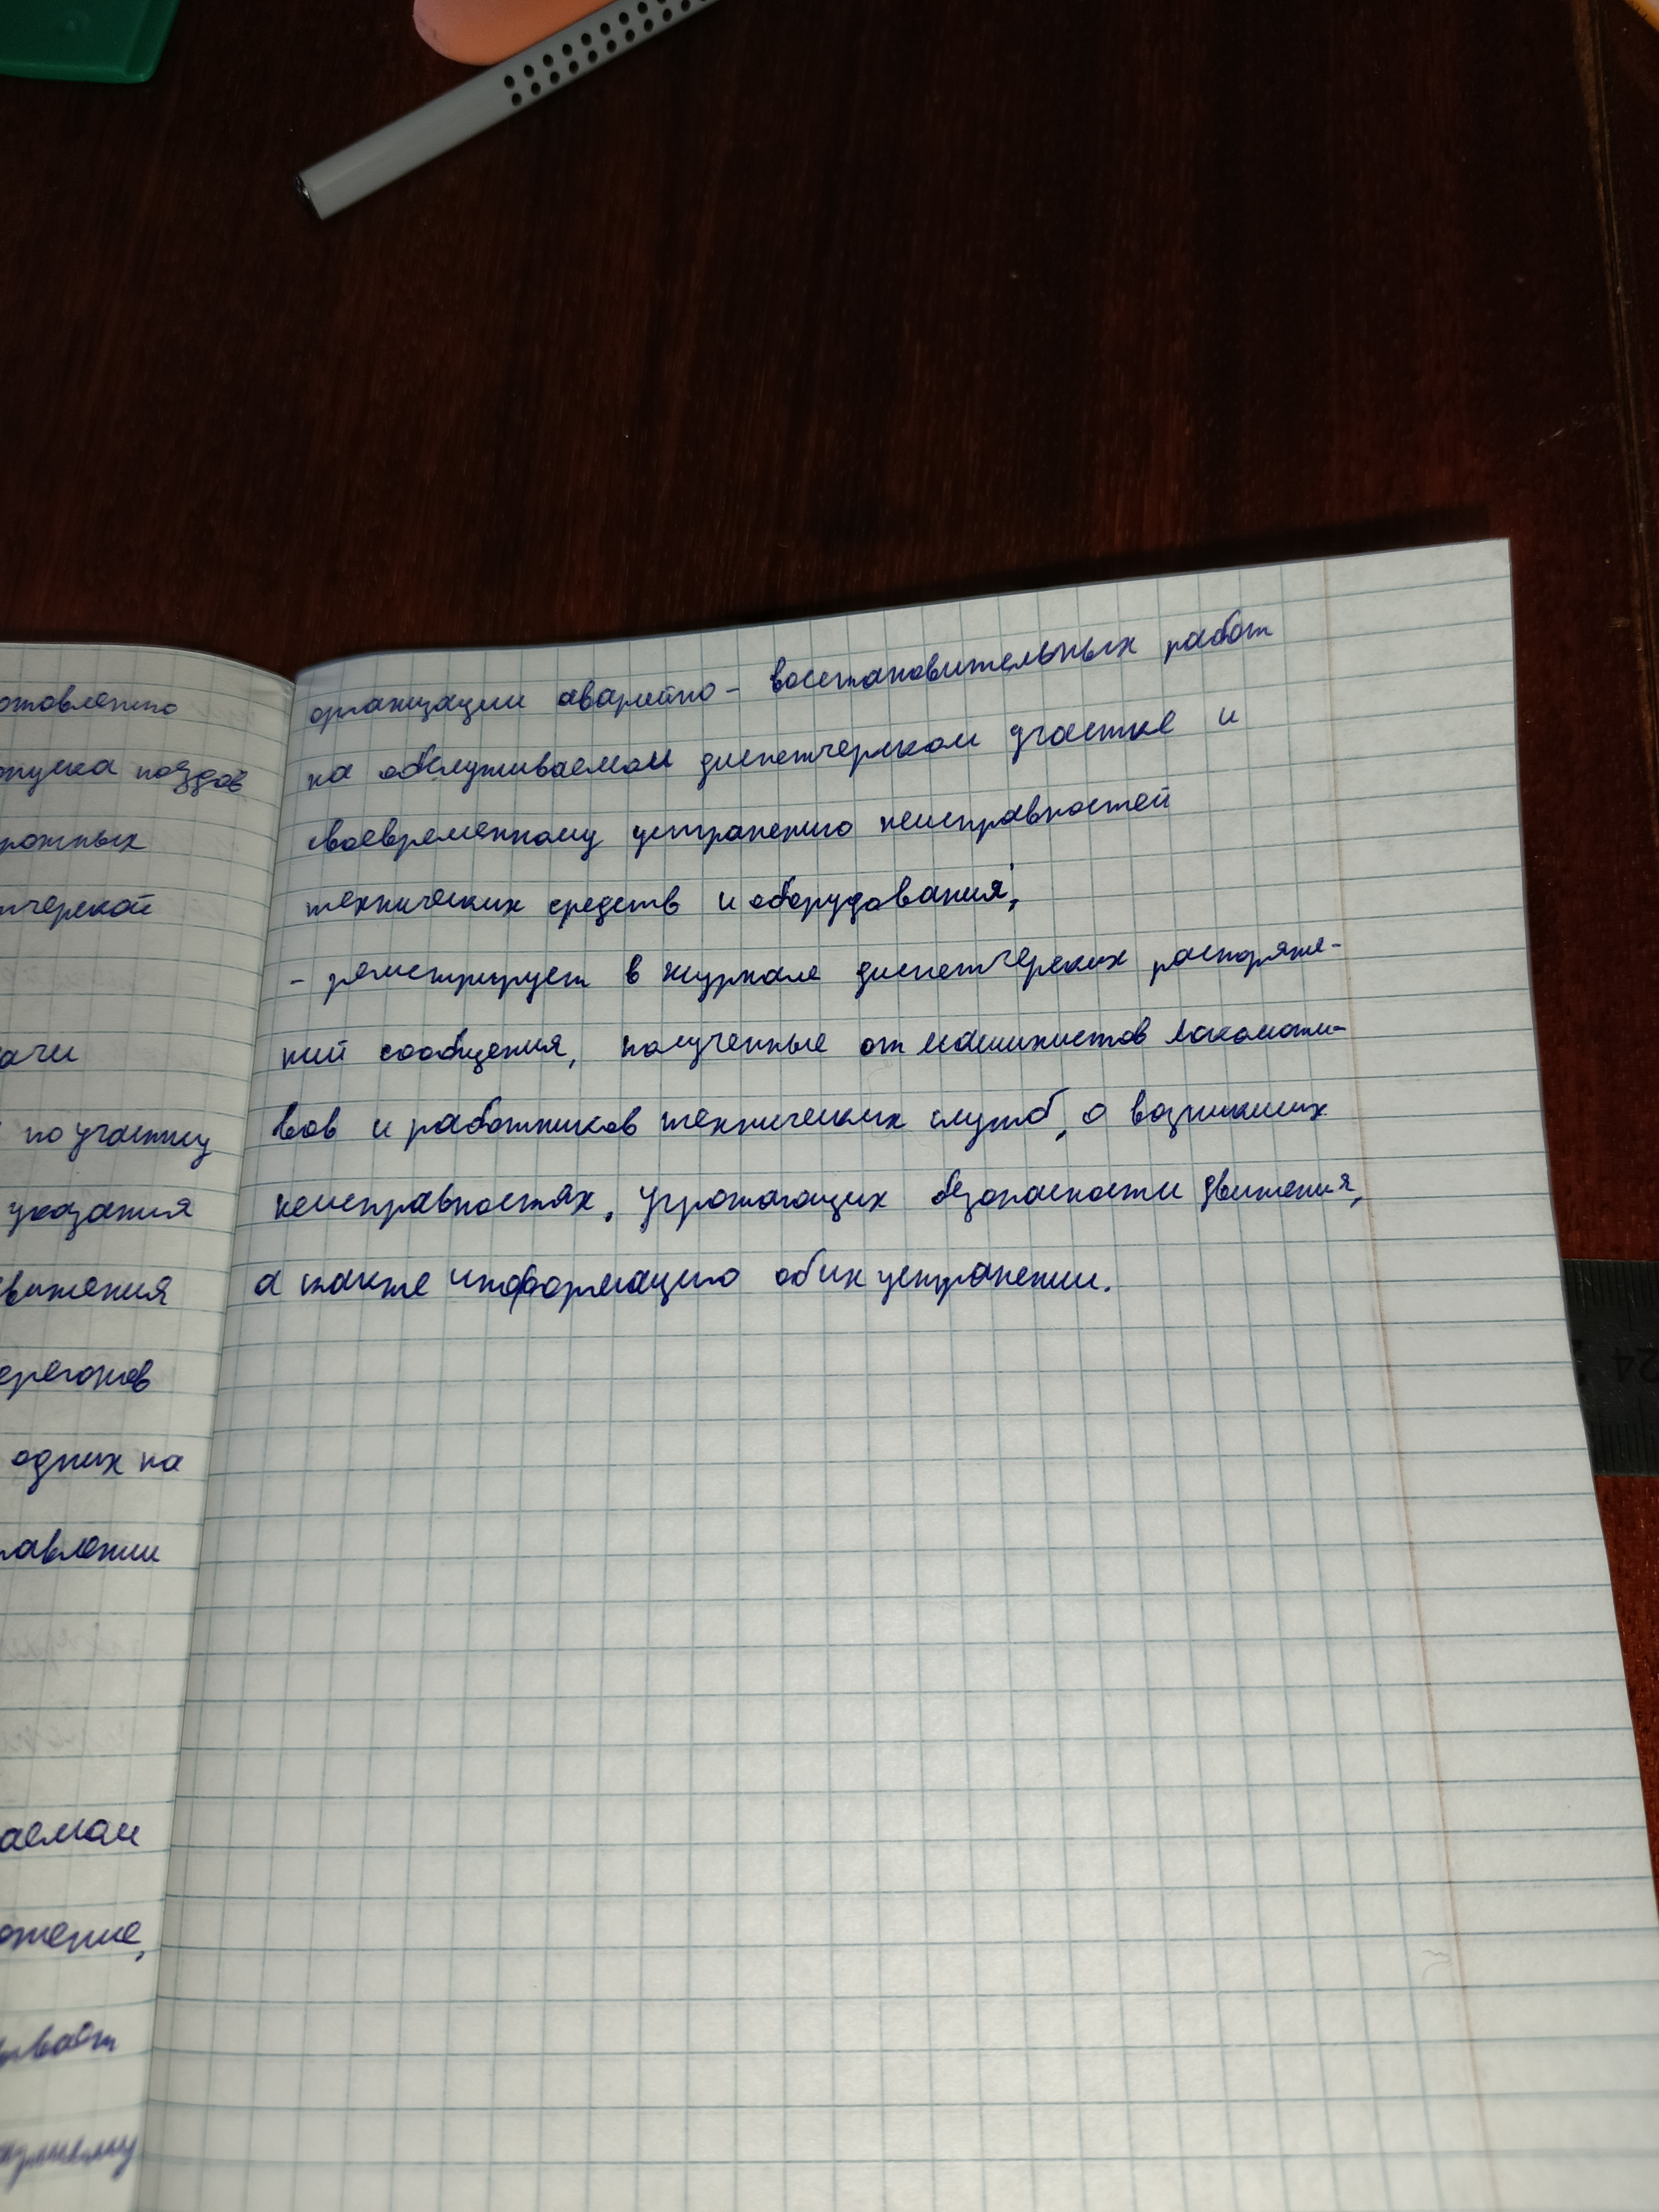 отовленно
опуска поездов
рожных
тчерской
ачи
по участку
указания
вижения
ерегонов
одних на
равлении
аемом
ожение,
ывает
организации аварийно - восстановительных работ
на обслуживаемом диспетчерском участке и
своевременному устранению неисправностей
технических средств и оборудования;
- регистрирует в журнале диспетчерских распоряже-
ний сообщения, полученные от машинистов локомоти-
вов и работников технических служб, о возникших
неисправностях, угрожающих безопасности движения,
а также информацию об их устранении.
24